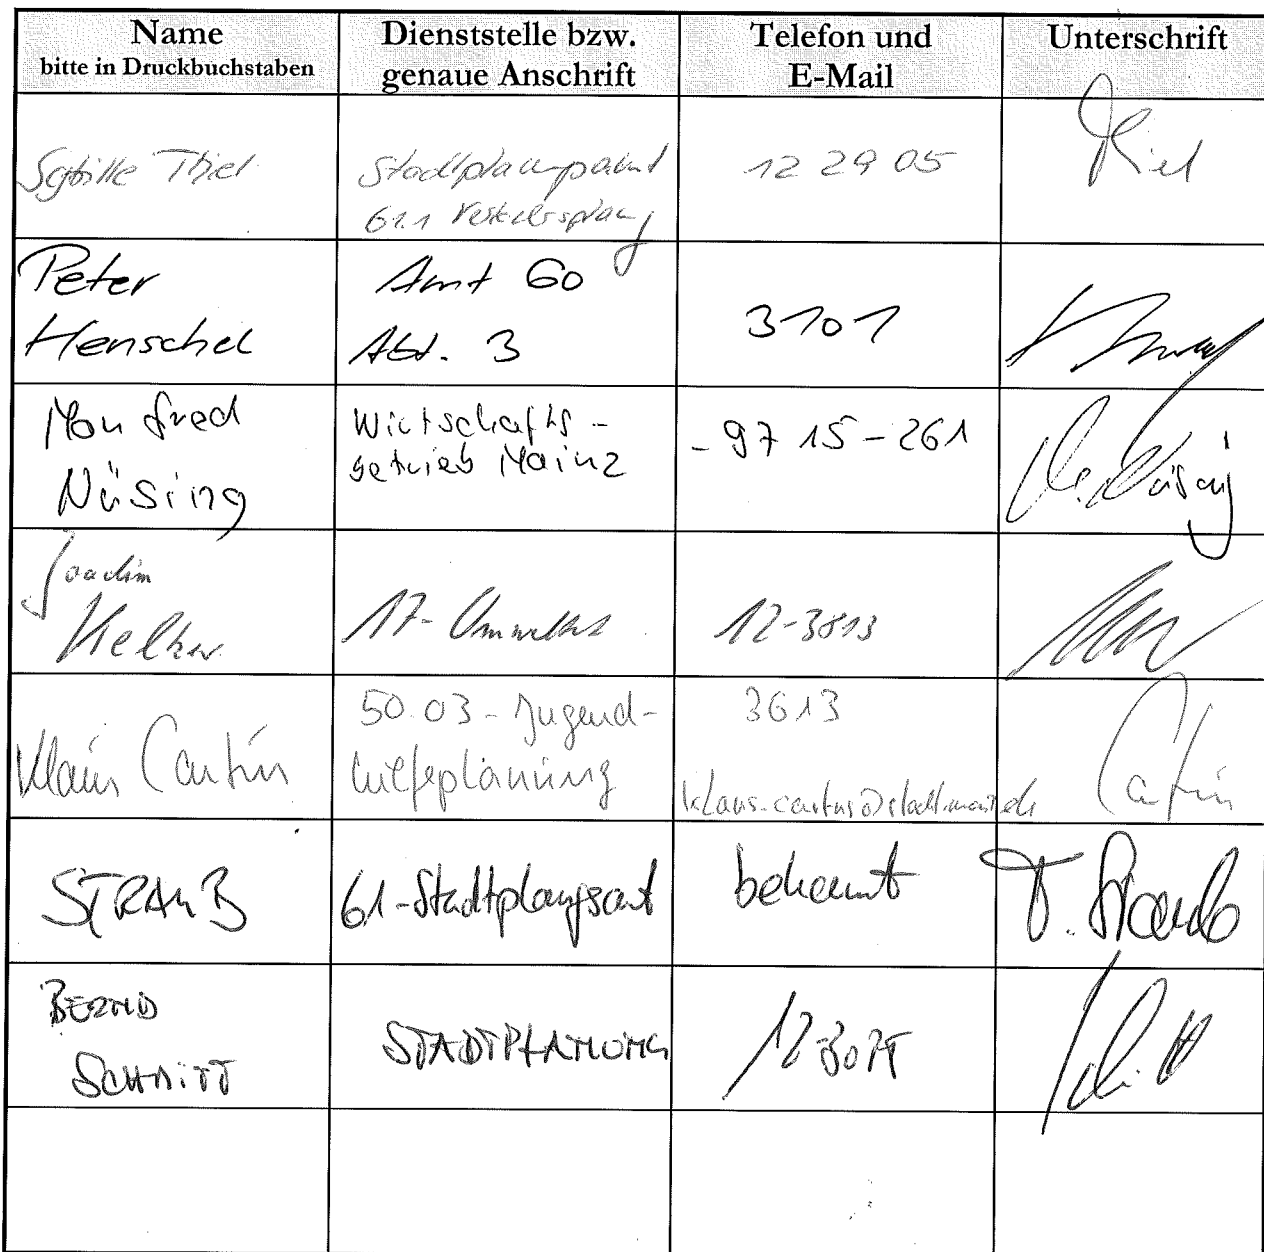 Name
bitte in Druckbuchstaben
Dienststelle bzw.
genaue Anschrift
Telefon und
E-Mail
Unterschrift
Sybille Thiel
Stadtplanungsamt
61.1 Verkehrsplanung
12 29 05
Thiel
Peter
Henschel
Amt 60
Abt. 3
3701
Manfred
Nüsing
Wirtschafts-
betrieb Mainz
- 97 15 - 261
M. Nüsing
Joachim
Kelker
17- Umweltamt
12-3813
Klaus Cartus
50.03 - Jugend-
hilfeplanung
3613
klaus.cartus@stadt.mainz.de
Cartus
STRAUB
61-Stadtplanungsamt
bekannt
T. Straub
BERND
SCHMITT
STADTPLANUNG